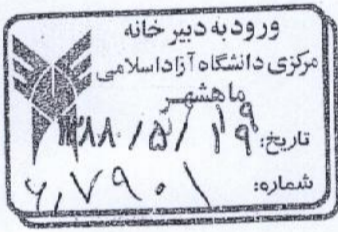 ورود به دبیرخانه
مرکزی دانشگاه آزاد اسلامی
ماهشهر
تاریخ: ۱۳۸۸/۵/۱۹
شماره: